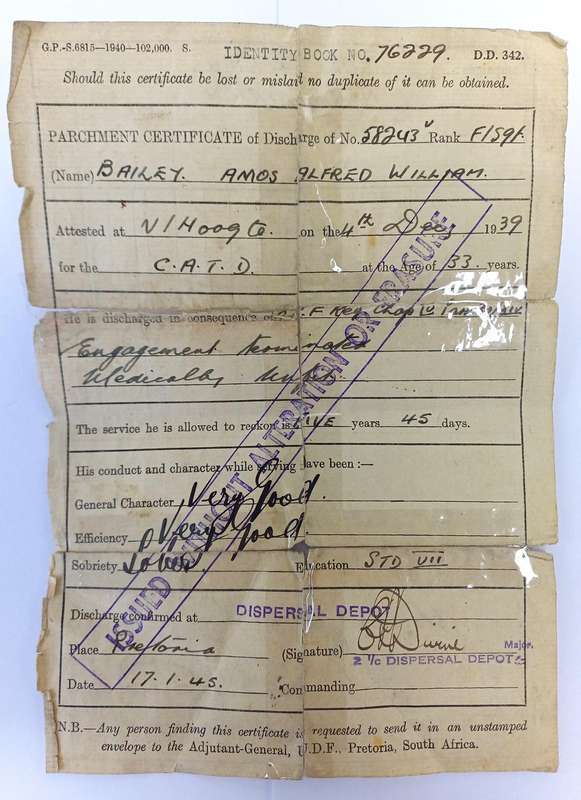 G.P.-S.6815—1940—102,000. S. IDENTITY BOOK NO. 76229. D.D. 342.
Should this certificate be lost or mislaid no duplicate of it can be obtained.
PARCHMENT CERTIFICATE of Discharge of No. 58243V Rank F/Sgt.
(Name) BAILEY. AMOS ALFRED WILLIAM.
Attested at V/Hoogte. on the 4th Dec. 1939
for the C.A.T.D. at the Age of 33 years.
He is discharged in consequence of F Reg. Chap
Engagement Terminated
Medically Unfit.
The service he is allowed to reckon is FIVE years 45 days.
His conduct and character while serving have been :—
General Character Very Good.
Efficiency Very Good.
Sobriety Sober Education STD VII
Discharge confirmed at DISPERSAL DEPOT
Place Pretoria (Signature) Major.
2 I/C DISPERSAL DEPOT
Date 17.1.45. Commanding
ISSUED WITHOUT ALTERATION OR ERASURE
N.B.—Any person finding this certificate is requested to send it in an unstamped
envelope to the Adjutant-General, U.D.F., Pretoria, South Africa.